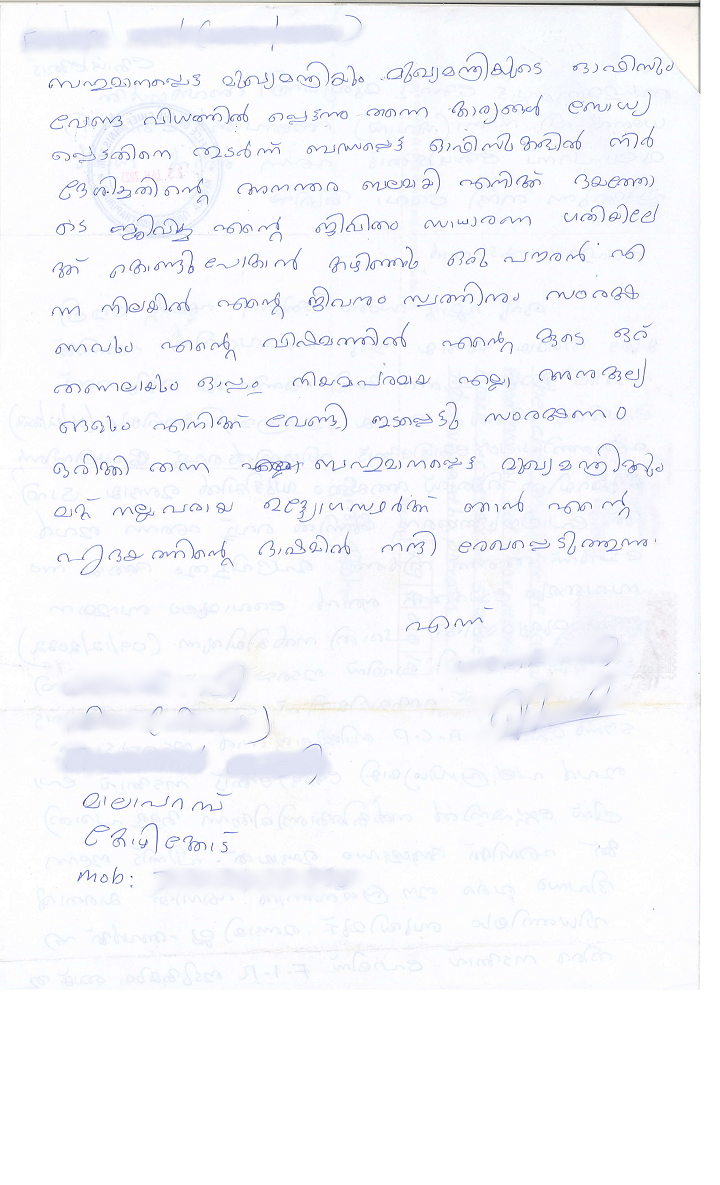 ബഹുമാനപ്പെട്ട മുഖ്യമന്ത്രിക്കും മുഖ്യമന്ത്രിയുടെ ഓഫിസും
വേണ്ട വിധത്തിൽ പ്പെടുന്ന തന്നെ കാര്യങ്ങൾ ബോധ്യ
പ്പെട്ടതിനെ തുടർന്ന് ബന്ധപ്പെട്ട ഓഫിസുകളിൽ നിർ
ദ്ദേശിച്ചതിന്റെ അനന്തര ബലമായി എനിക്ക് ഭയത്തോ
ടെ ജീവിച്ച എന്റെ ജീവിതം സാധാരണ ഗതിയിലേ
ക്ക് കൊണ്ടുപോകാൻ കഴിഞ്ഞും ഒരു പൗരൻ എ
ന്ന നിലയിൽ എന്റെ ജീവനും സ്വത്തിനും സംരക്ഷ
ണവും എന്റെ വിഷമത്തിൽ എന്റെ കൂടെ ഒരു
തണലായും ഒപ്പം നിയമപരമായ എല്ലാ അനുകൂല്യ
ങ്ങളും എനിക്ക് വേണ്ടി ഇടപ്പെട്ടു സംരക്ഷണം
ഒരിക്കി തന്ന ബഹുമാനപ്പെട്ട മുഖ്യമന്ത്രിക്കും
മറ്റ് നല്ലവരായ ഉദ്യോഗസ്ഥർക്ക് ഞാൻ എന്റെ
ഹൃദയത്തിന്റെ ഭാഷയിൽ നന്ദി രേഖപ്പെടുത്തുന്നു.
എന്ന്
മാലാപറമ്പ്
കോഴിക്കോട്
mob: